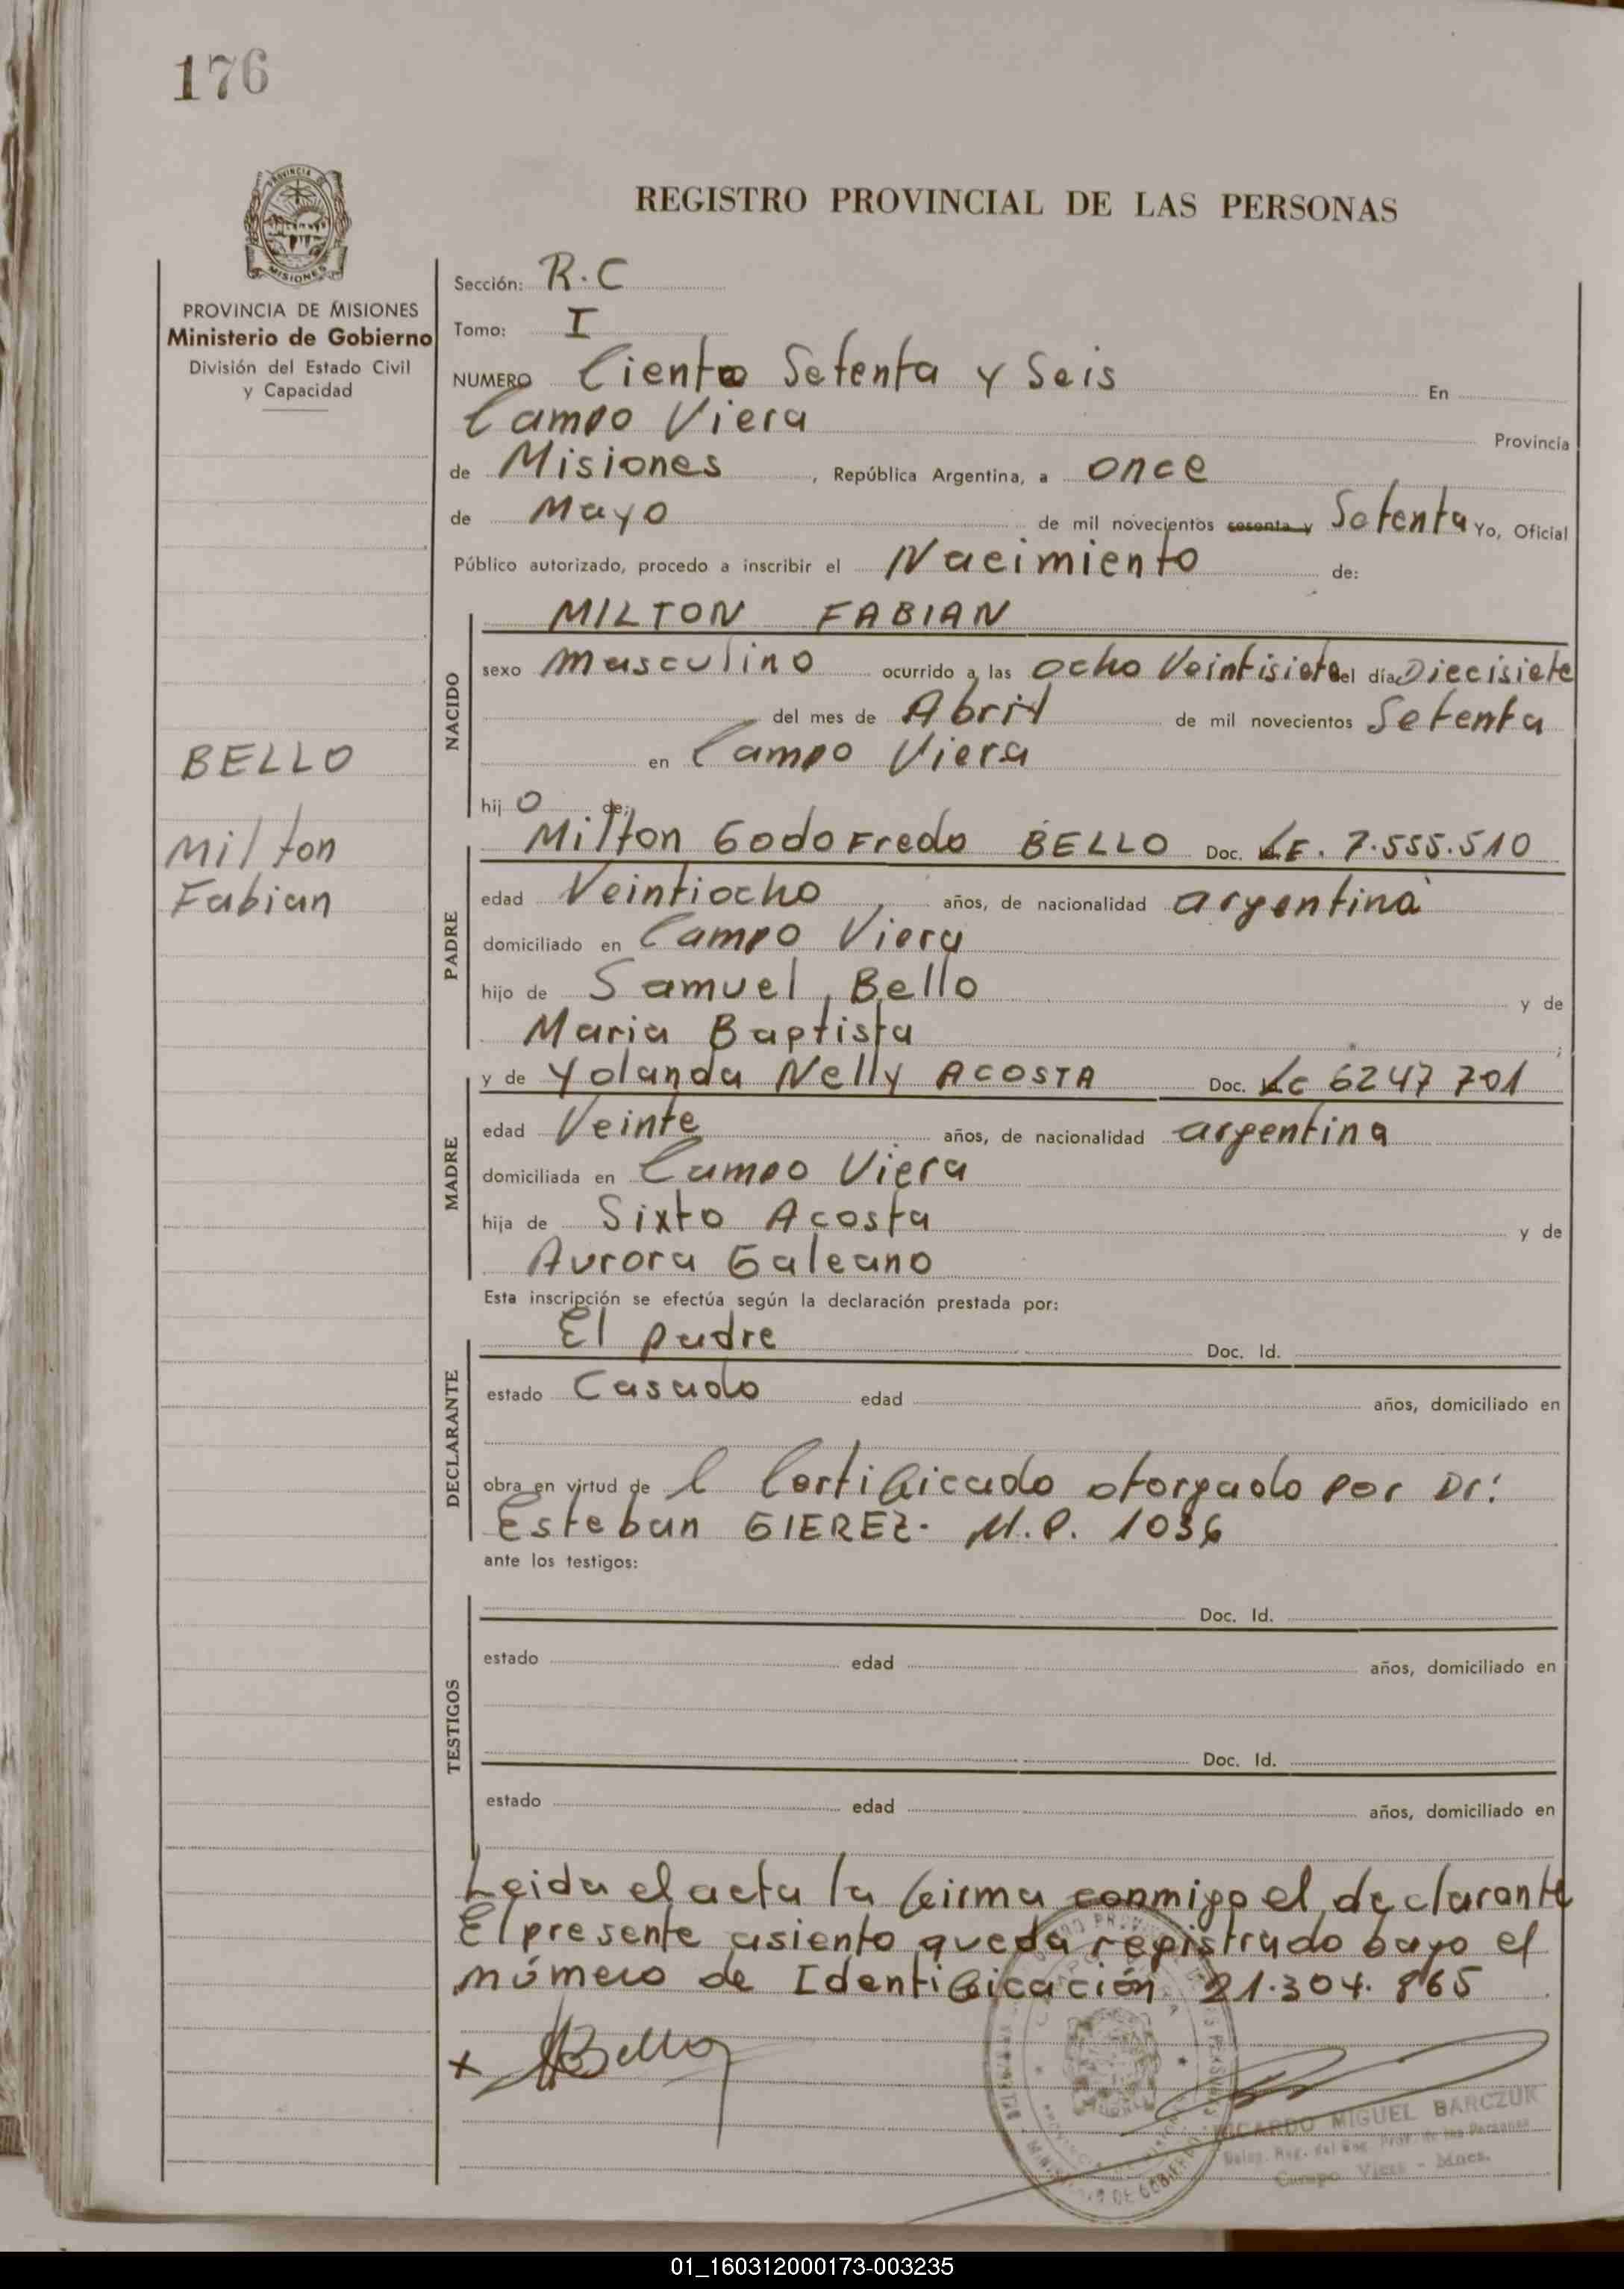 176
MISIONES
PROVINCIA DE MISIONES
Ministerio de Gobierno
División del Estado Civil
y Capacidad
REGISTRO PROVINCIAL DE LAS PERSONAS
Sección: R.C
Tomo: I
NUMERO Ciento Setenta y Seis En
Campo Viera Provincia
de Misiones, República Argentina, a once
de Mayo de mil novecientos sesenta y Setenta Yo, Oficial
Público autorizado, procedo a inscribir el Nacimiento de:
NACIDO
MILTON FABIAN
sexo masculino ocurrido a las ocho Veintisiete del día Diecisiete
del mes de Abril de mil novecientos Setenta
en Campo Viera
hij o de:
BELLO
Milton
Fabian
PADRE
Milton Godofredo BELLO Doc. LE. 7.555.510
edad Veintiocho años, de nacionalidad argentina
domiciliado en Campo Viera
hijo de Samuel Bello y de
Maria Baptista ;
MADRE
y de Yolanda Nelly ACOSTA Doc. LC 6247 701
edad Veinte años, de nacionalidad argentina
domiciliada en Campo Viera
hija de Sixto Acosta y de
Aurora Galeano
Esta inscripción se efectúa según la declaración prestada por:
DECLARANTE
El padre Doc. Id.
estado Casado edad años, domiciliado en
obra en virtud de l Certificado otorgado por Dr:
Esteban GIEREZ. M.P. 1036
ante los testigos:
TESTIGOS
Doc. Id.
estado edad años, domiciliado en
Doc. Id.
estado edad años, domiciliado en
Leida el acta la firma conmigo el declarante
El presente asiento queda registrado bayo el
número de Identificación 21.304.865
x Bello
RICARDO MIGUEL BARCZUK
Deleg. Reg. del Reg. Prov. de las Personas
Campo Viera - Mnes.
01_160312000173-003235